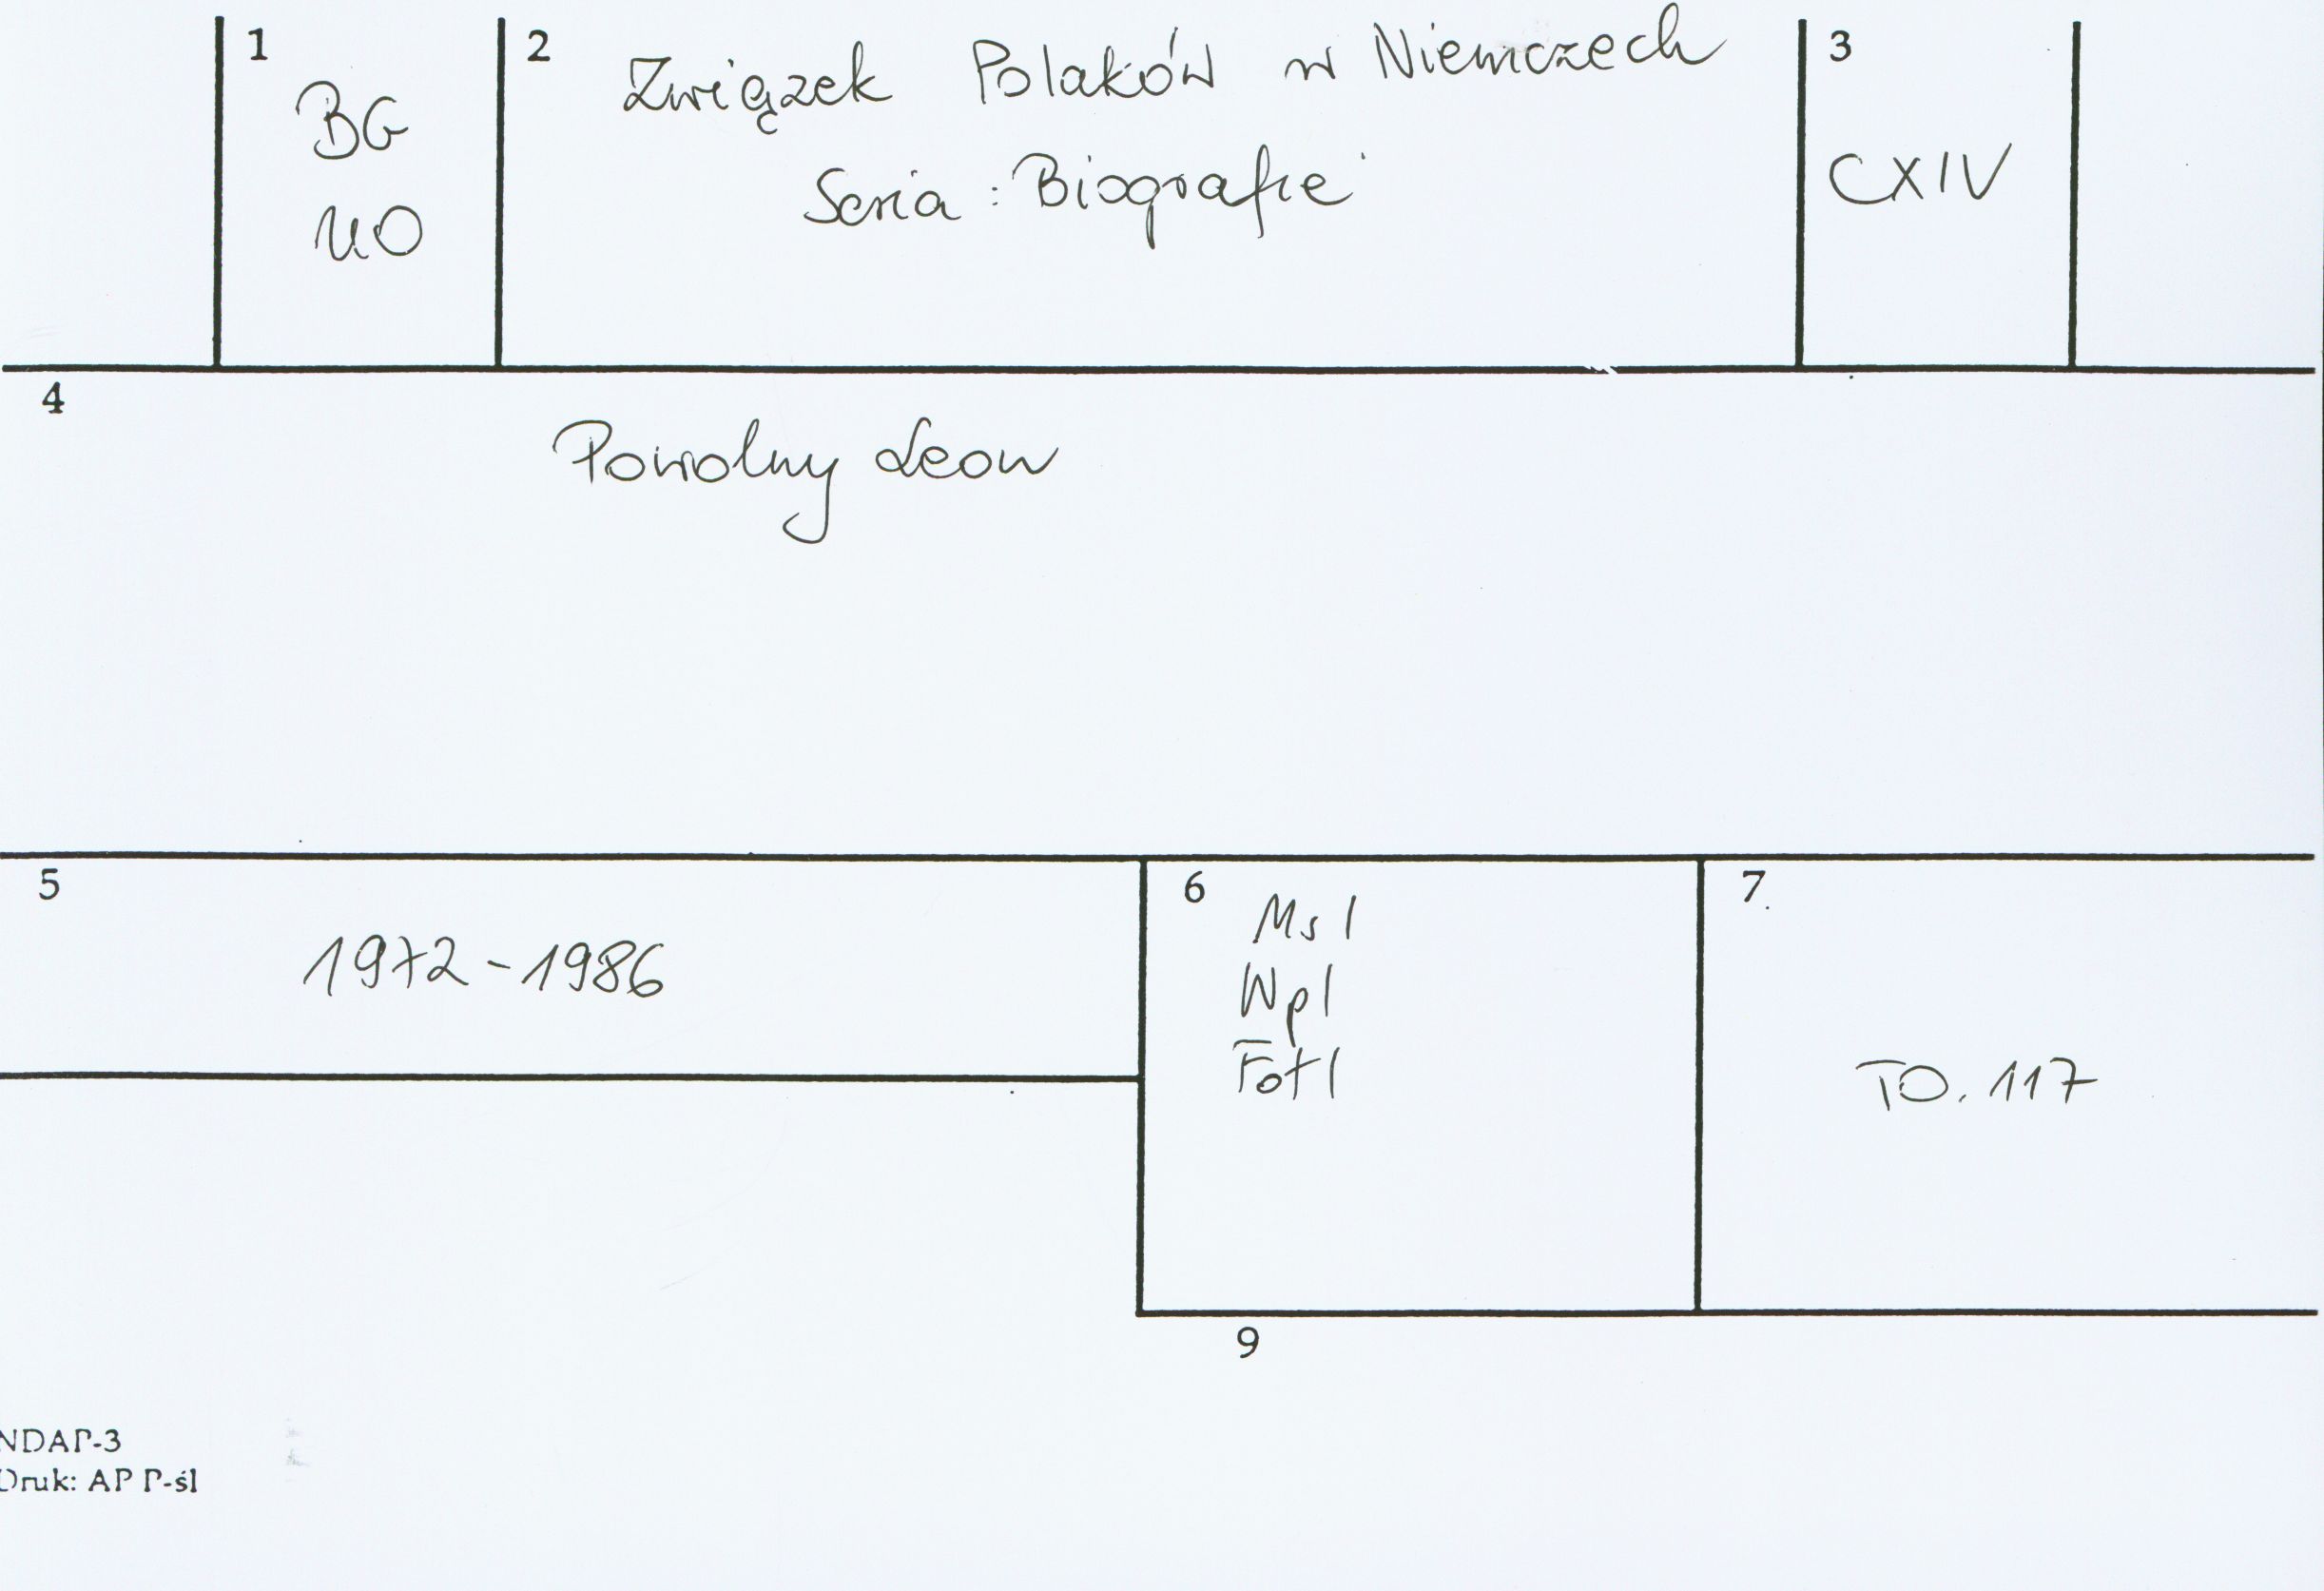 1
BG
UO
2
Związek Polaków w Niemczech
Seria: Biografie
3
CXIV
4
Powolny Leon
5
1972-1986
6
Ms 1
Wp 1
Fot 1
7
TO. 117
9
NDAP-3
Druk: AP P-śl